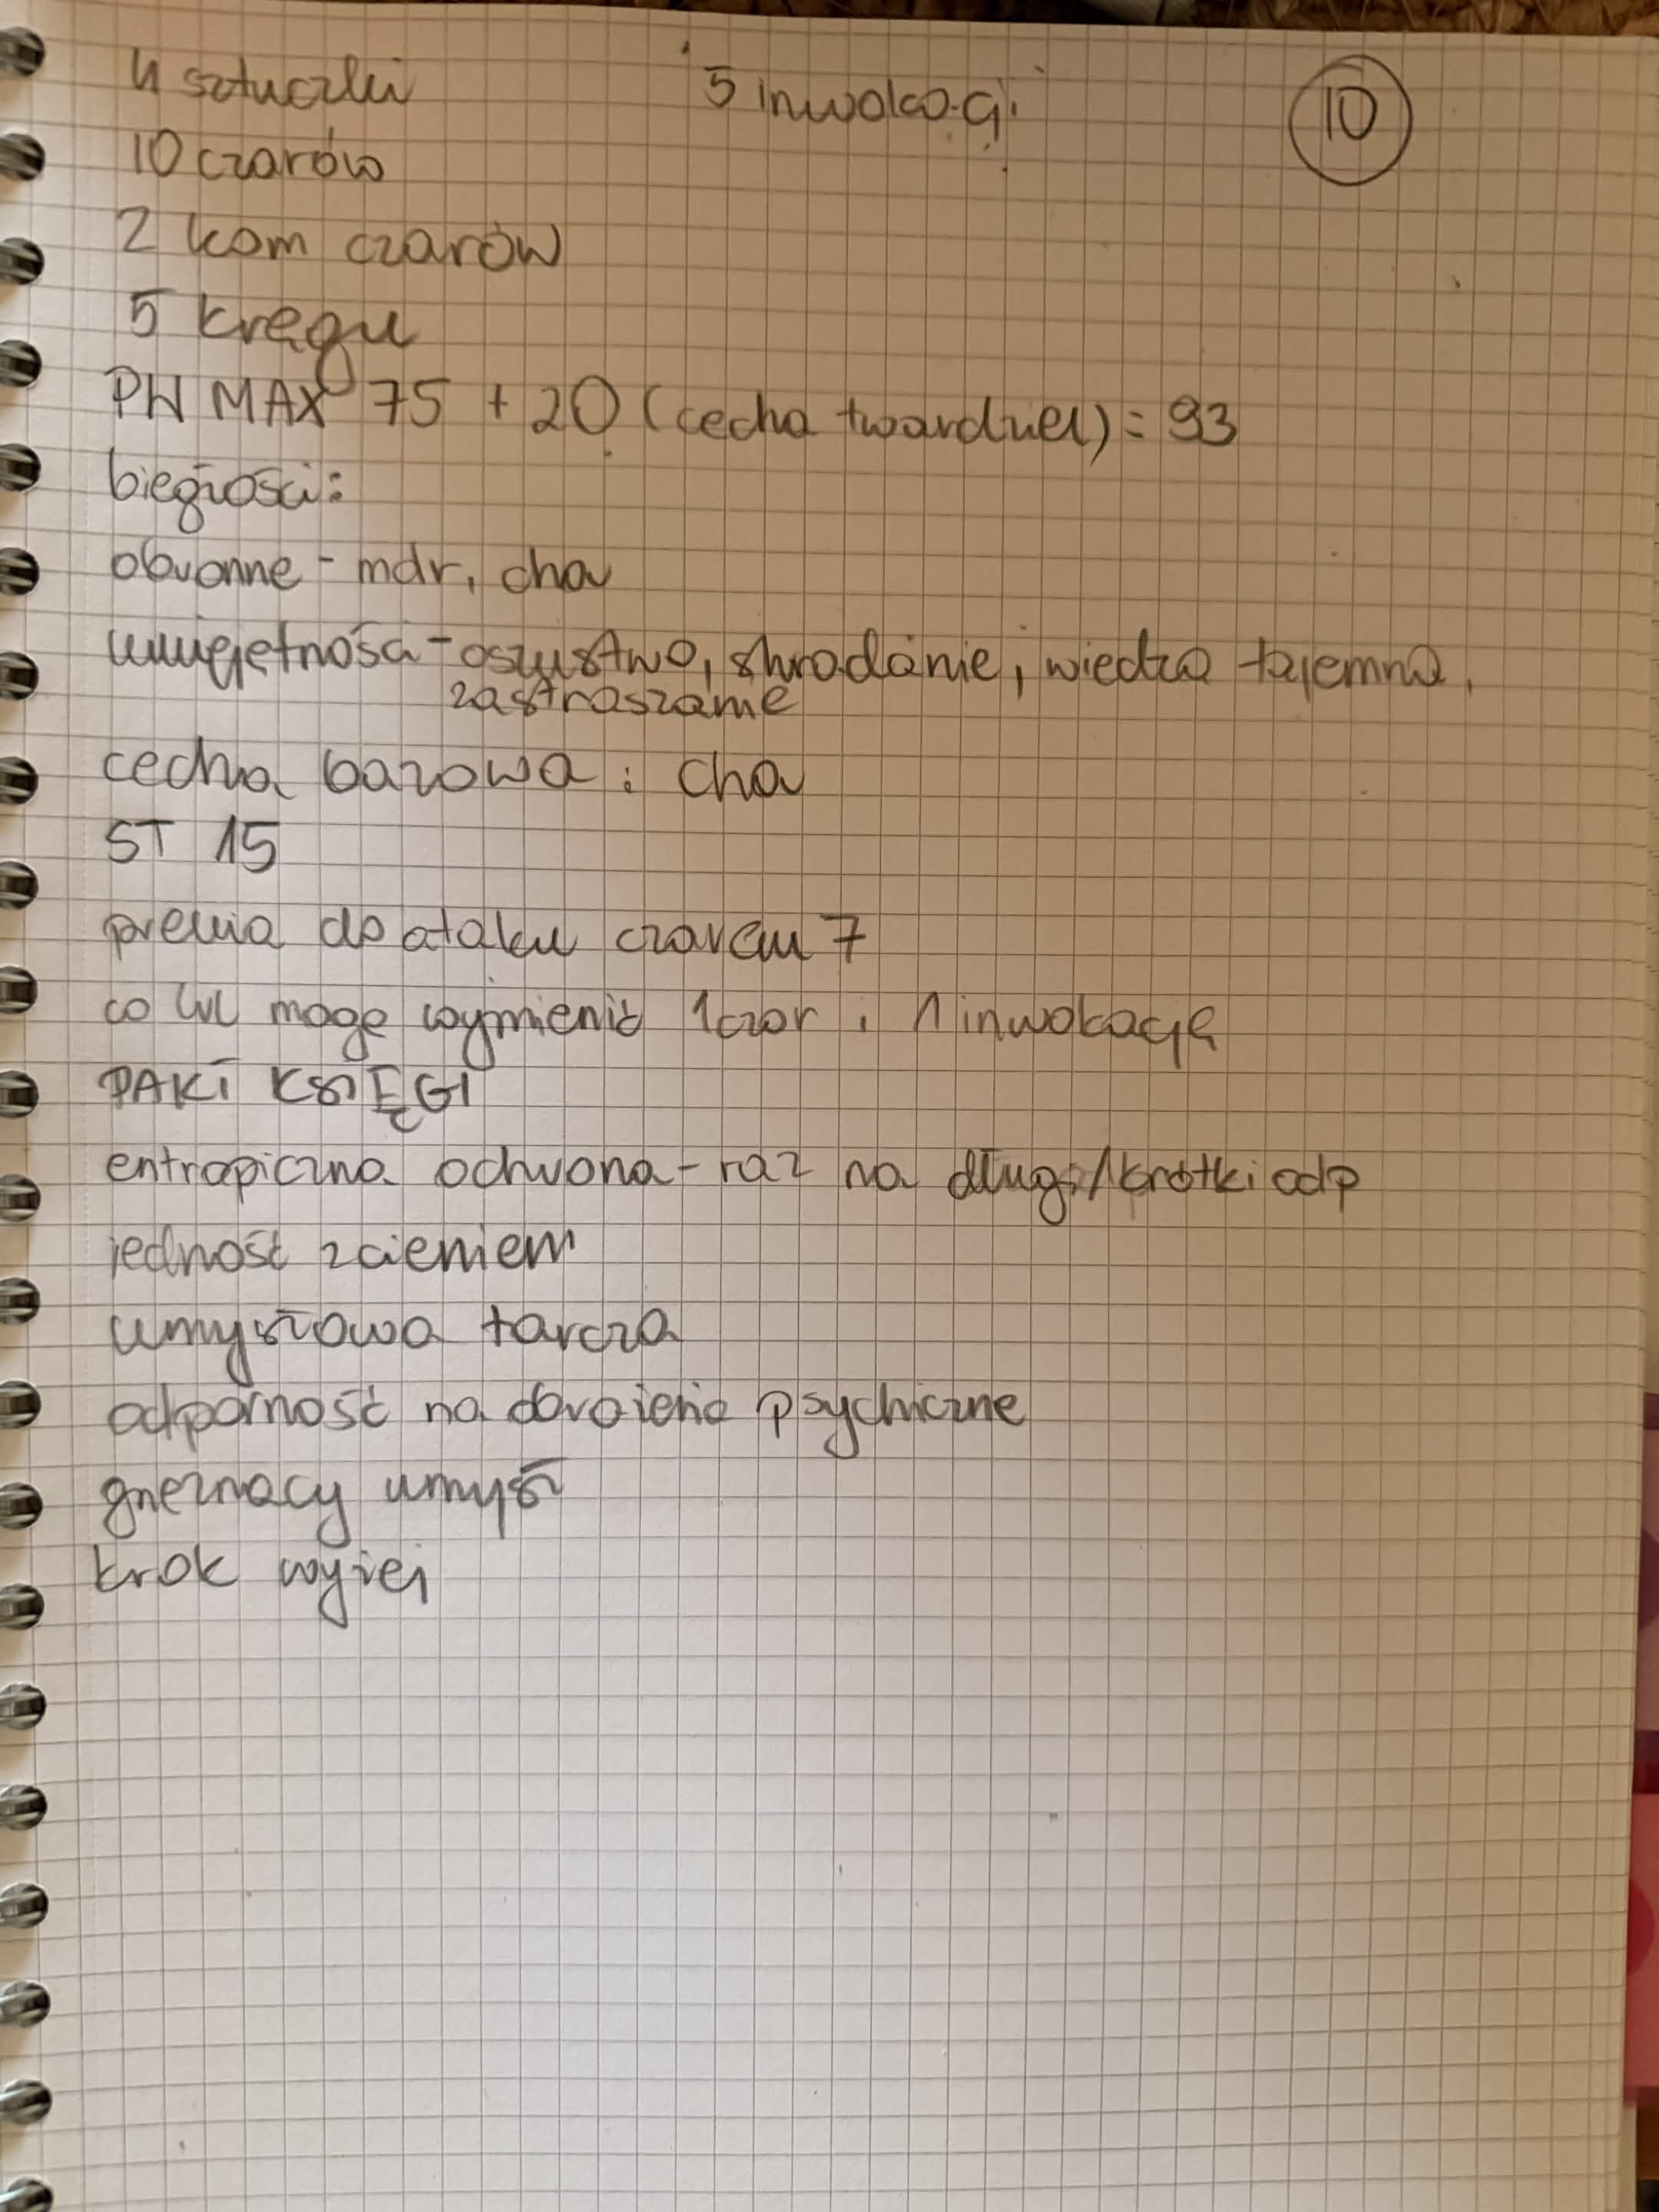 4 sztuczki 5 inwokacji 10
10 czarów
2 kom czarów
5 kręgu
PW MAX 75 + 20 (cecha twardziel) = 93
biegłości:
obronne - mdr, cha
umiejętności - oszustwo, skradanie, wiedza tajemna,
zastraszanie
cecha bazowa : cha
ST 15
premia do ataku czarem 7
co lvl mogę wymienić 1 czar i 1 inwokację
PAKT KSIĘGI
entropiczna ochrona - raz na długi/krótki odp
jedność z cieniem
umysłowa tarcza
odporność na obrażenia psychiczne
gneznacy umysł
krok wyżej